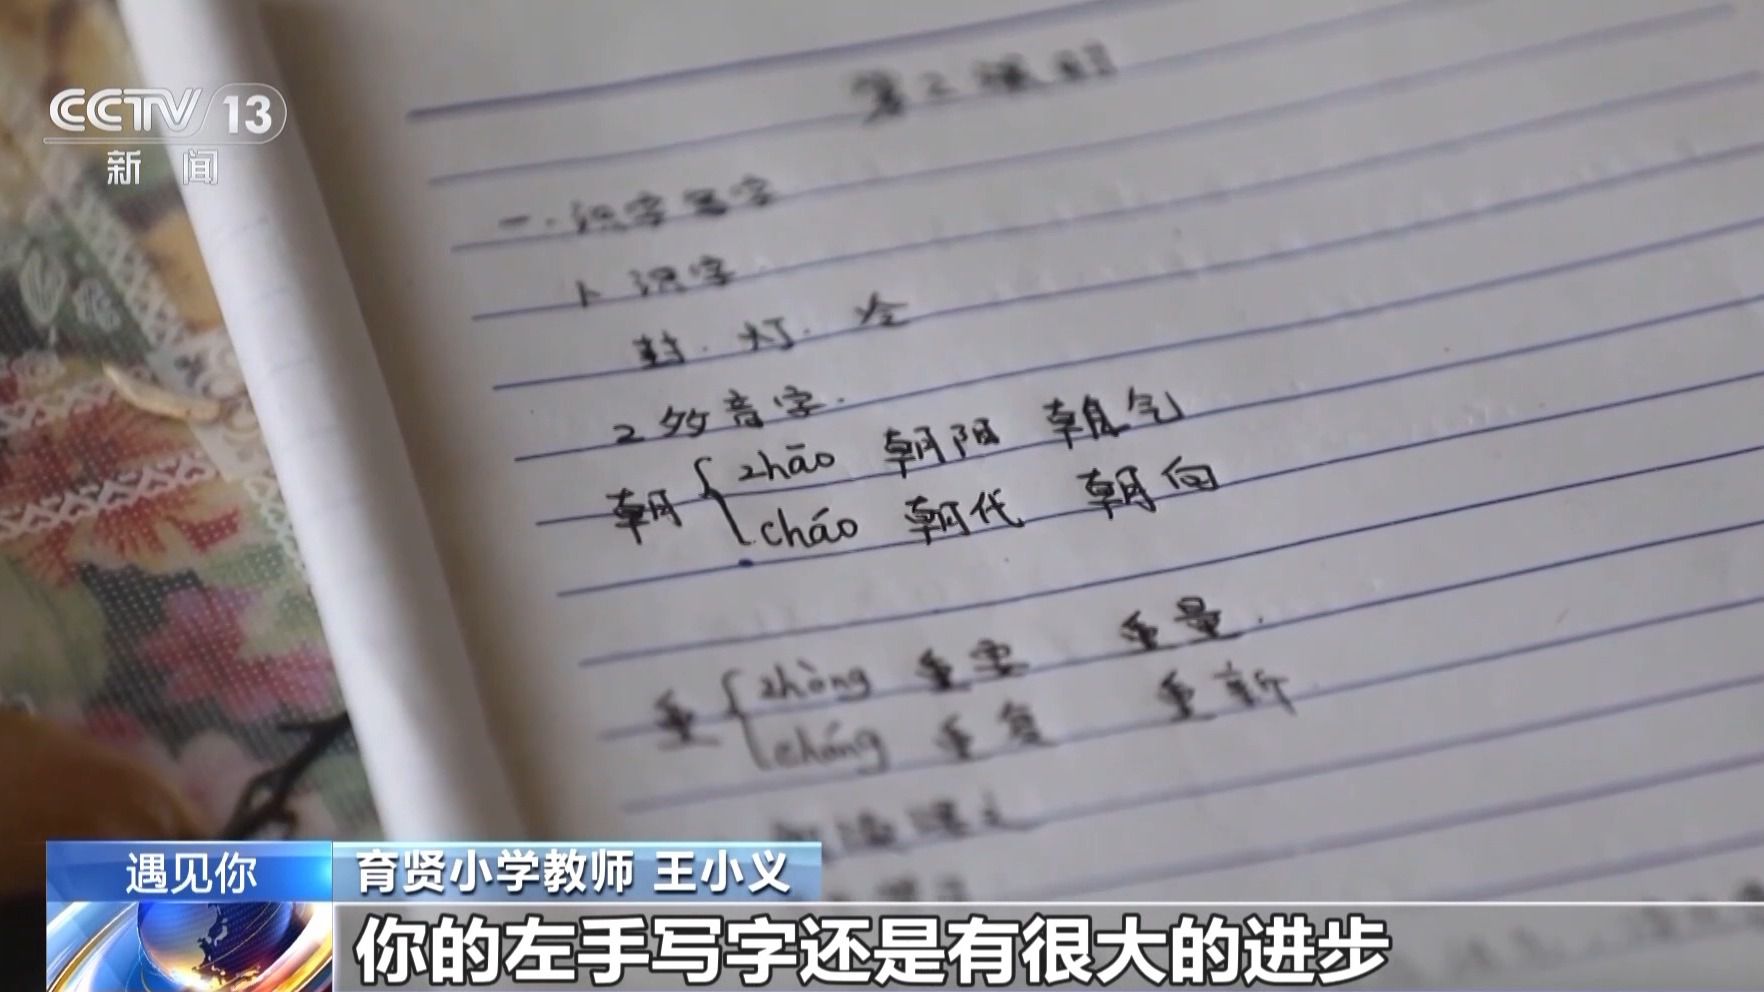 CCTV 13
新 闻
第二课时
一、识字写字
1、识字
封、灯、冷
2 多音字.
朝 { zhāo 朝阳 朝气
cháo 朝代 朝向
重 { zhòng 重要 重量.
chóng 重复 重新
遇见你
育贤小学教师 王小义
你的左手写字还是有很大的进步